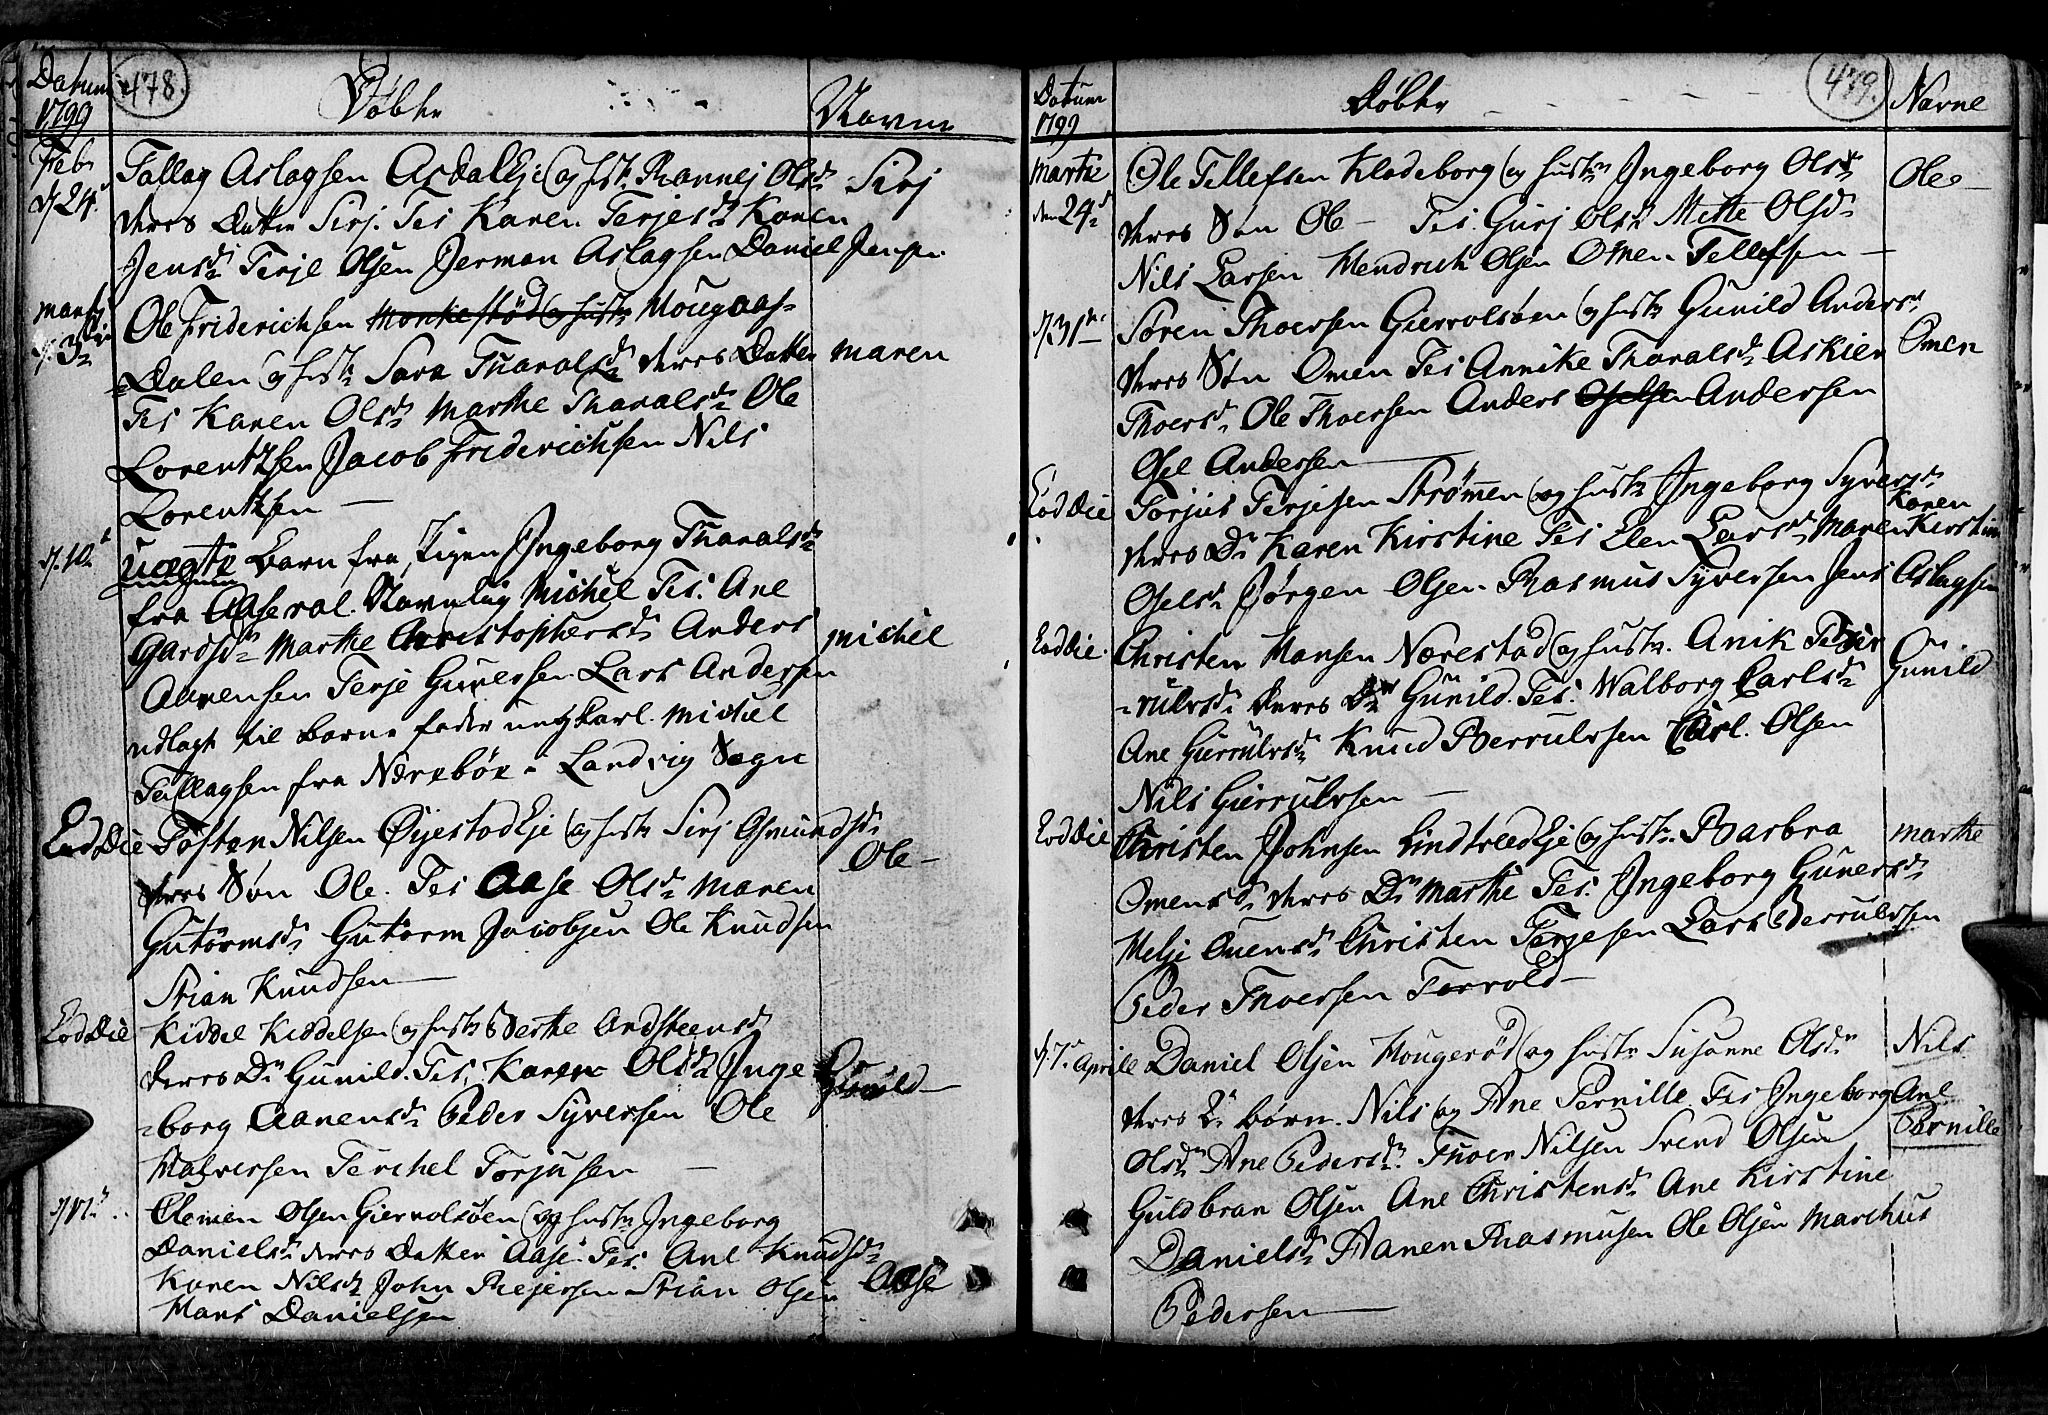 Datum 1799
478.
Døbte
Navne
Feb d. 24.
Tallag Aslagsen Asdal Eje og hst. Rannej Olsd.
Sirj
deres Datter Sirj. Tes Karen Terjesd. Karen
Jensd. Terje Olsen Jerman Aslagsen Daniel Jensen
Marty d. 3die
Ole Friderichsen Monkestød og hust. Hougaas-
Dalen og hust. Sara Tharalsd. deres Datter
Maren
Tes Karen Olsd. Marthe Tharalsd. Ole
Lorentzsen Jacob Friderichsen Nils
Lorentzsen
d. 10.
uægte Barn fra Pigen Ingeborg Tharalsd.
fra Aaseral. Navnlig Michel Tes. Ane
Gardsd. Marthe Christophersd. Anders
Michel
Aanensen Terje Gunersen Lars Andersen
udlagt til Barne fader ungkarl. Michel
Tallagsen fra Nærebøe - Landvig Sogn
Eod Die
Tosten Nilsen Øyestad Eje og hust. Sirj Osmundsd.
Ole
deres Søn Ole. Tes Aase Olsd. Maren
Gutormsd. Gutorm Jacobsen Ole Knudsen
Stian Knudsen
Eod Die
Kiddel Kiddelsen og hust. Berthe Andsteensd.
deres D. Gunild. Tes. Karen Olsd. Inge
Gunild
-borg Aanensd. Peder Syversen Ole
Halversen Terchel Torjusen
d. 17.
Clemen Olsen Giervolsøen og hust. Ingeborg
Danielsd. deres Datter Aase. Tes. Ane Knudsd.
Aase
Karen Nilsd. John Reiersen Stian Olsen
Hans Danielsen
Datum 1799
Døbte
479.
Navne
Martz den 24.
Ole Tellefsen Klodeborg og hust. Ingeborg Olsd.
Ole
deres Søn Ole - Tes. Gurj Olsd. Mette Olsd.
Nils Larsen Hendrich Olsen Omen Tellefsen
d. 31te
Søren Thoersen Giervolsøen og hust. Gunild Andersd.
Omen
deres Søn Omen Tes Annike Tharalsd. Askier
Thoersd. Ole Thoersen Anders Oselsen Andersen
Osel Andersen
Eod Die
Torjus Terjesen Strømen og hust. Ingeborg Syversd.
Karen Kirstine
deres D. Karen Kirstine Tes Elen Larsd. Maren
Oselsd. Jørgen Olsen Rasmus Syversen Jens Aslagsen
Eod Die
Christen Hansen Nærestad og hust. Anik
Gunild
-rulvsd. deres D. Gunild. Tes. Walborg Carlsd.
Ane Gierrulvsd. Knud Berrulvsen Carl Olsen
Nils Gierrulvsen
Eod Die
Christen Johnsen Lindtved Eje og hust. Barbra
Marthe
Omensd. deres D. Marthe Tes. Ingeborg Gunersd.
Helje Ouensd. Christen Terjesen Lars Berrulvsen
Peder Thoersen Torvold
d. 7. Aprile
Daniel Olsen Hougerød og hust. Susanne Olsd.
Nils
deres 2. Børn. Nils og Ane Pernille Tes Ingeborg
Ane Pernille
Olsd. Ane Pedersd. Thoer Nilsen Svend Olsen
Guldbran Olsen Ane Christensd. Ane Kirstine
Danielsd. Aanen Rasmusen Ole Olsen Marchus
Pedersen